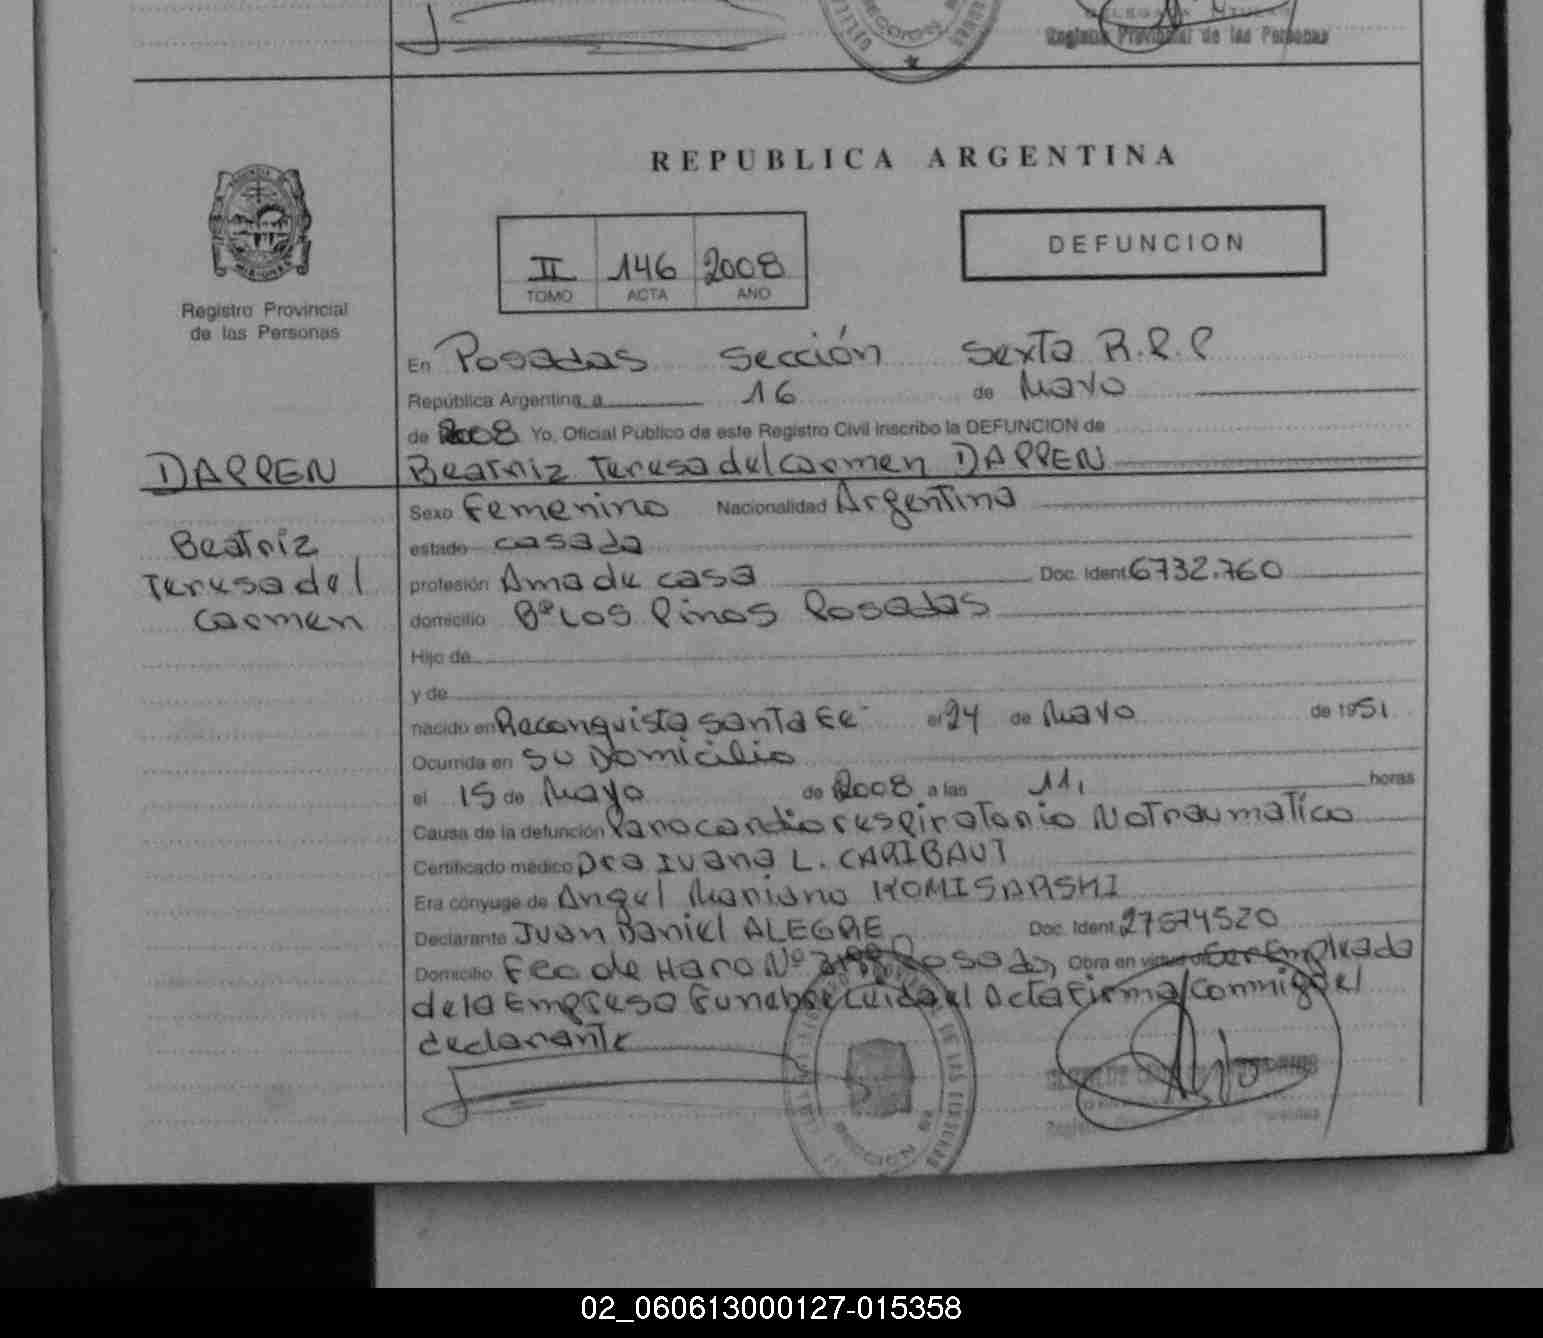 Registro Provincial de las Personas
REPUBLICA ARGENTINA
II 146 2008
TOMO ACTA AÑO
DEFUNCION
Registro Provincial
de las Personas
En Posadas Sección Sexta R.P.P
República Argentina, a 16 de Mayo
de 2008 Yo, Oficial Público de este Registro Civil inscribo la DEFUNCION de
DAPPEN
Beatriz Teresa del Carmen DAPPEN
Beatriz
Teresa del
Carmen
Sexo Femenino Nacionalidad Argentina
estado casada
profesión Ama de casa Doc. Ident. 6732.760
domicilio Bº Los Pinos Posadas
Hijo de
y de
nacido en Reconquista Santa Fe el 24 de Mayo de 1951
Ocurrida en su Domicilio
el 15 de Mayo de 2008 a las 11, horas
Causa de la defunción Paro cardio respiratorio No traumatico
Certificado médico Dra Ivana L. CARIBAUT
Era cónyuge de Angel Mariano KOMISARSKI
Declarante Juan Daniel ALEGRE Doc. Ident. 27574520
Domicilio Fco de Haro Nº Posadas Obra en virtud de Ser Empleado
de la Empresa Funebre Leida el Acta Firma Conmigo el
declarante
02_060613000127-015358